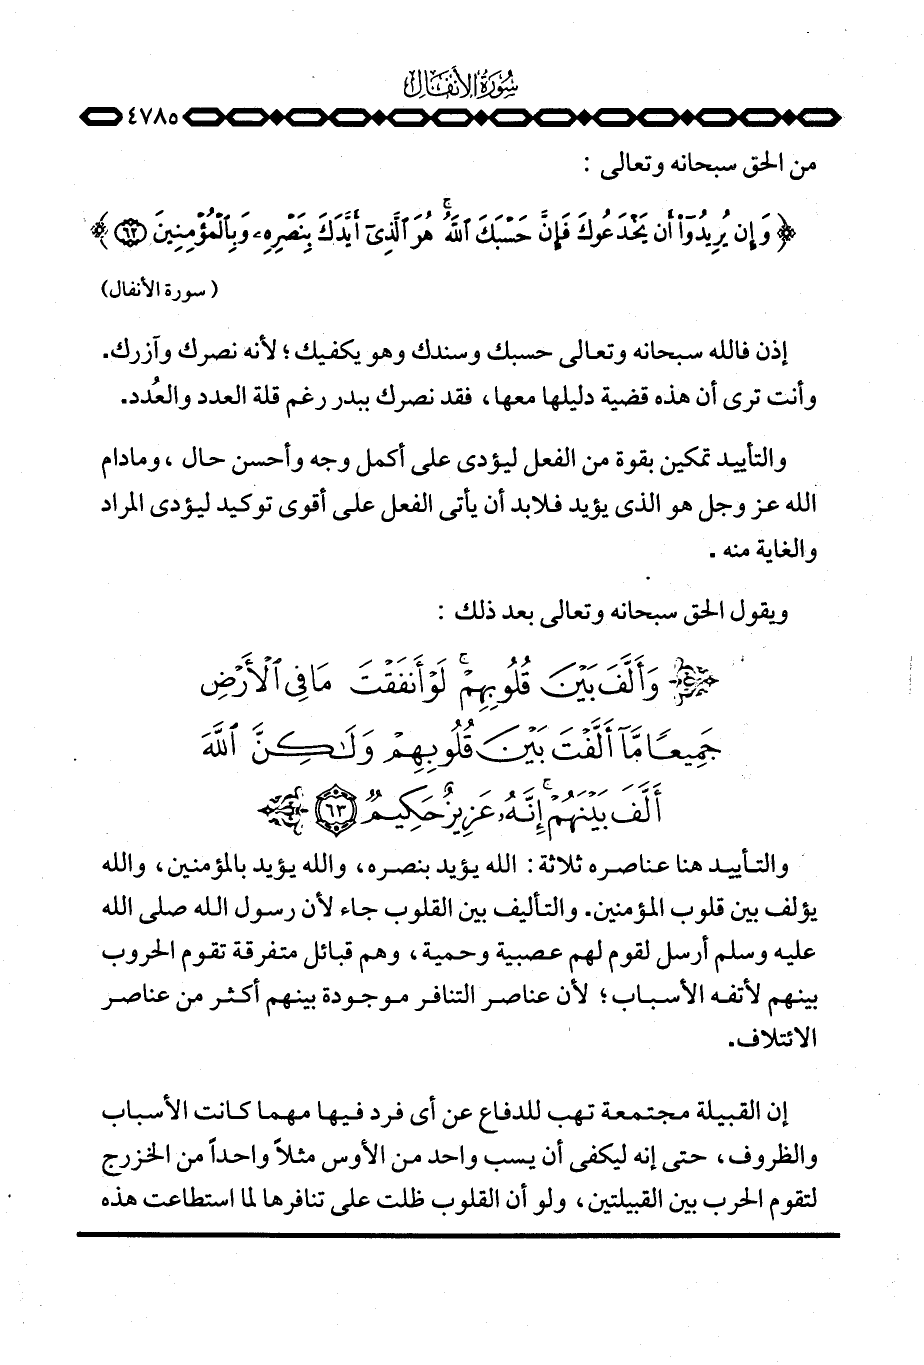 سُورَةُ الأَنفَالِ
٤٧٨٥
من الحق سبحانه وتعالى :
﴿ وَإِن يُرِيدُوٓا۟ أَن يَخْدَعُوكَ فَإِنَّ حَسْبَكَ ٱللَّهُ ۚ هُوَ ٱلَّذِىٓ أَيَّدَكَ بِنَصْرِهِۦ وَبِٱلْمُؤْمِنِينَ ﴿٦٢﴾ ﴾
( سورة الأنفال)
إذن فالله سبحانه وتعالى حسبك وسندك وهو يكفيك؛ لأنه نصرك وآزرك.
وأنت ترى أن هذه قضية دليلها معها، فقد نصرك ببدر رغم قلة العدد والعُدد.
والتأييد تمكين بقوة من الفعل ليؤدى على أكمل وجه وأحسن حال ، ومادام
الله عز وجل هو الذى يؤيد فلابد أن يأتى الفعل على أقوى توكيد ليؤدى المراد
والغاية منه .
ويقول الحق سبحانه وتعالى بعد ذلك :
وَأَلَّفَ بَيْنَ قُلُوبِهِمْ ۚ لَوْ أَنفَقْتَ مَا فِى ٱلْأَرْضِ
جَمِيعًا مَّآ أَلَّفْتَ بَيْنَ قُلُوبِهِمْ وَلَـٰكِنَّ ٱللَّهَ
أَلَّفَ بَيْنَهُمْ ۚ إِنَّهُۥ عَزِيزٌ حَكِيمٌ ﴿٦٣﴾
والتأييد هنا عناصره ثلاثة : الله يؤيد بنصره، والله يؤيد بالمؤمنين، والله
يؤلف بين قلوب المؤمنين. والتأليف بين القلوب جاء لأن رسول الله صلى الله
عليه وسلم أرسل لقوم لهم عصبية وحمية، وهم قبائل متفرقة تقوم الحروب
بينهم لأتفه الأسباب؛ لأن عناصر التنافر موجودة بينهم أكثر من عناصر
الائتلاف.
إن القبيلة مجتمعة تهب للدفاع عن أى فرد فيها مهما كانت الأسباب
والظروف، حتى إنه ليكفى أن يسب واحد من الأوس مثلاً واحداً من الخزرج
لتقوم الحرب بين القبيلتين، ولو أن القلوب ظلت على تنافرها لما استطاعت هذه